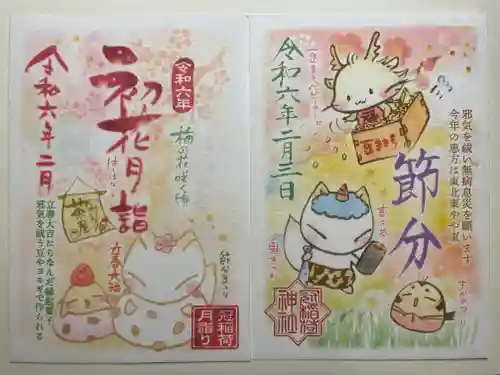 令和六年
初花月詣
はつはなづき
令和六年二月
梅の花咲く頃
茶屋
立春大吉
立春大吉にちなんだ縁起菓子
邪気を祓う豆やヨモギで作られる
冠稲荷
月詣り
節分
令和六年二月三日
邪気を祓い無病息災を願います
今年の恵方は東北東やや東
冠稲荷
神社